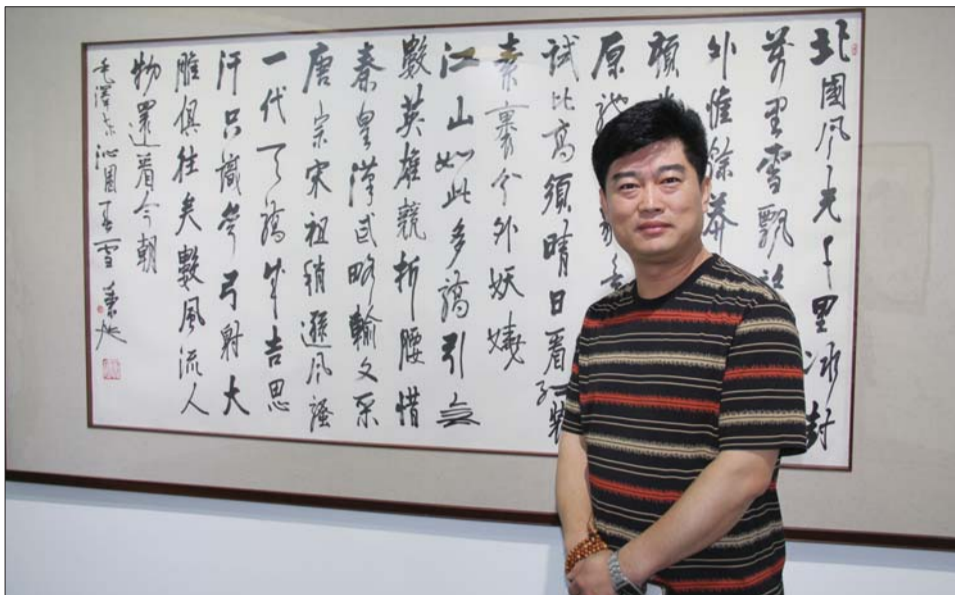 北國風光千里冰封
萬里雪飄
外惟餘莽
頓
原馳
試比高須晴日看紅裝
素裹分外妖嬈
江山如此多嬌引無
數英雄競折腰惜
秦皇漢武略輸文采
唐宗宋祖稍遜風騷
一代天驕成吉思
汗只識彎弓射大
雕俱往矣數風流人
物還看今朝
毛澤東沁園春雪